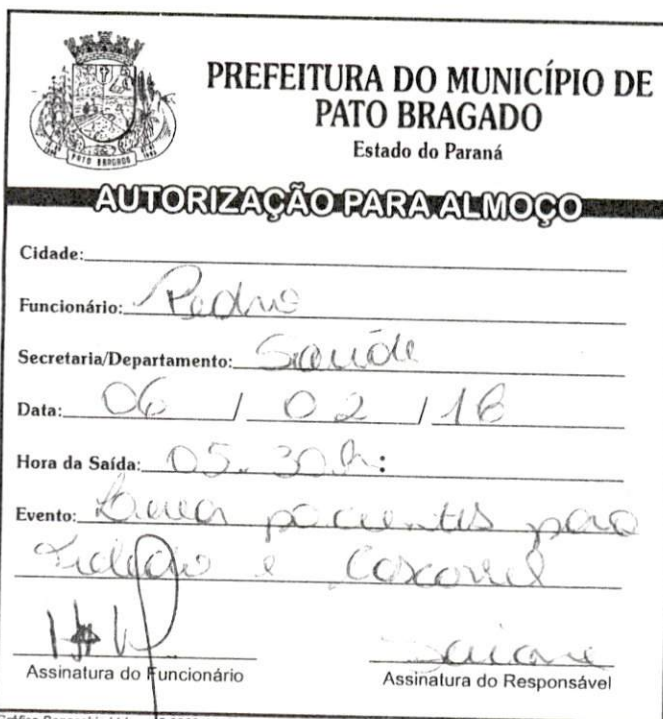 PATO BRAGADO
PREFEITURA DO MUNICÍPIO DE
PATO BRAGADO
Estado do Paraná
AUTORIZAÇÃO PARA ALMOÇO
Cidade:
Funcionário: Pedro
Secretaria/Departamento: Saúde
Data: 06 / 02 / 18
Hora da Saída: 05.30 h :
Evento: Levar pacientes para
Toledo e Cascavel
Assinatura do Funcionário
Daiane
Assinatura do Responsável